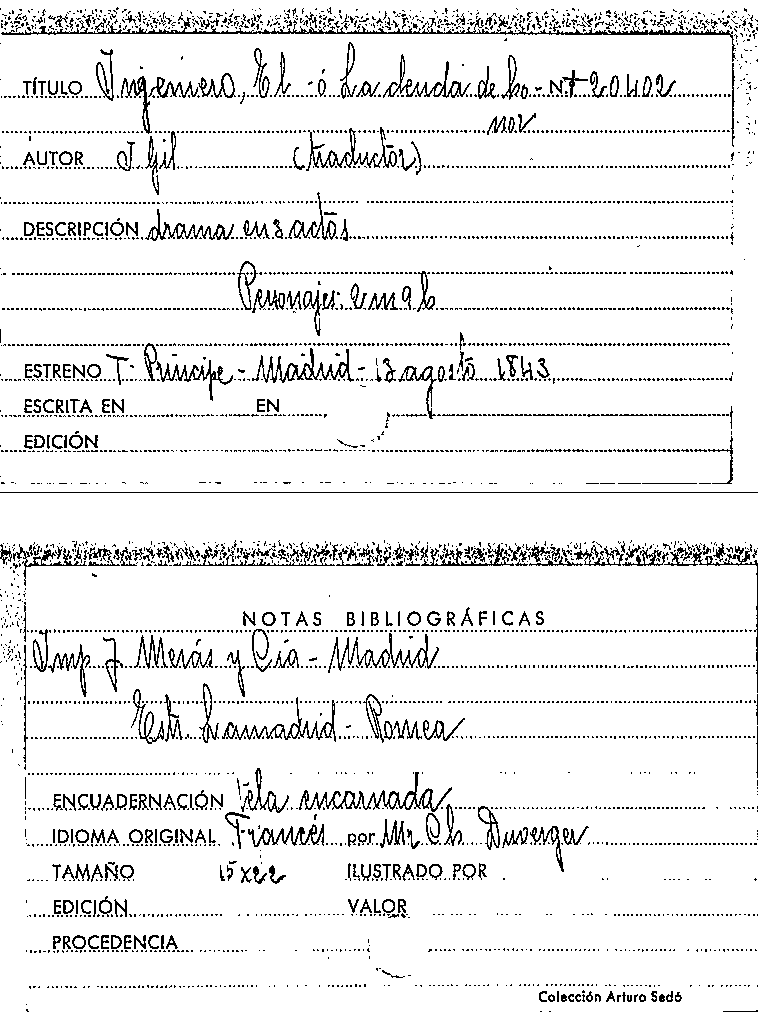 TÍTULO Ingeniero, El - ó La deuda de ho- N+ 20402
nor
AUTOR J. Gil (traductor)
DESCRIPCIÓN drama en 3 actos
Personajes. 2 m 9 h
ESTRENO T. Principe - Madrid - 13 agosto 1843
ESCRITA EN EN
EDICIÓN
NOTAS BIBLIOGRÁFICAS
Imp J. Merás y Cía - Madrid
Estr. Lamadrid - Romea
ENCUADERNACIÓN Tela encarnada
IDIOMA ORIGINAL Francés por Mr Ch Duverger
TAMAÑO 15 x 22 ILUSTRADO POR
EDICIÓN VALOR
PROCEDENCIA
Colección Arturo Sedó